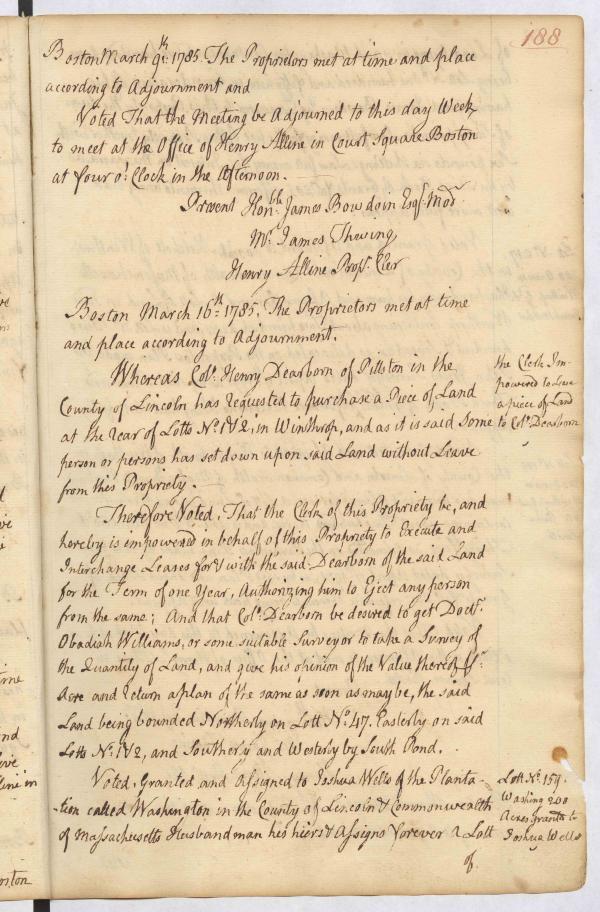 188
Boston March 9th. 1785. The Proprietors met at time and place
according to Adjournment and
Voted That the Meeting be Adjourned to this day Week,
to meet at the Office of Henry Alline in Court Square Boston
at four o'Clock in the Afternoon.
Present Honble. James Bowdoin Esqr. Modr.
Mr. James Thwing
Henry Alline Propr. Cler
Boston March 16th. 1785. The Proprietors met at time
and place according to Adjournment.
Whereas Colo. Henry Dearborn of Pittston in the
County of Lincoln has requested to purchase a Piece of Land
at the rear of Lotts No. 1 & 2, in Winthrop, and as it is said some
person or persons has set down upon said Land without Leave
from this Propriety.
the Clerk Im-
powered to Lease
a piece of Land
to Colo. Dearborn
Therefore Voted, That the Clerk of this Propriety be, and
hereby is impowered in behalf of this Propriety to Execute and
Interchange Leases for & with the said Dearborn of the said Land
for the Term of one Year, Authorizing him to Eject any person
from the same; And that Colo. Dearborn be desired to get Doctr.
Obadiah Williams, or some suitable Surveyor to take a Survey of
the Quantity of Land, and give his opinion of the Value thereof pr.
Acre and return a plan of the same as soon as may be, the said
Land being bounded Northerly on Lott No. 47. Easterly on said
Lotts No. 1 & 2, and Southerly and Westerly by South Pond.
Voted, Granted and Assigned to Joshua Wells of the Planta-
-tion called Washington in the County of Lincoln & Commonwealth
of Massachusetts Husbandman his hiers & Assigns forever a Lott
of
Lott No. 159.
Washing 200
Acres Granted to
Joshua Wells